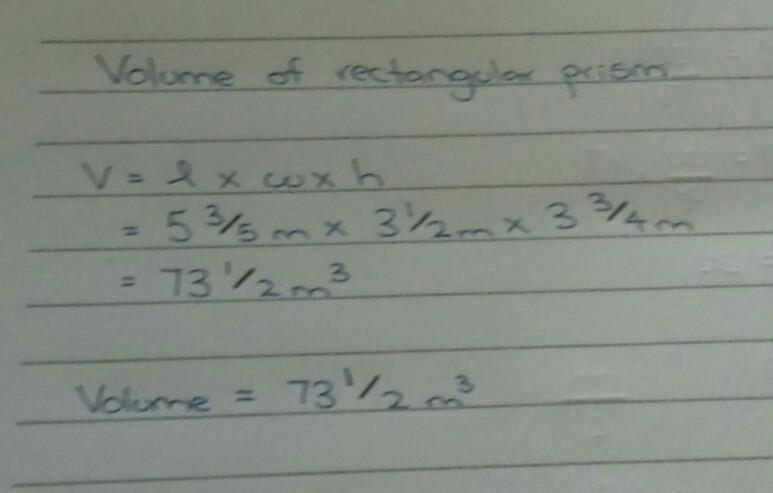 Volume of rectangular prism
V = l x w x h
= 5 3/5 m x 3 1/2 m x 3 3/4 m
= 73 1/2 m³
Volume = 73 1/2 m³